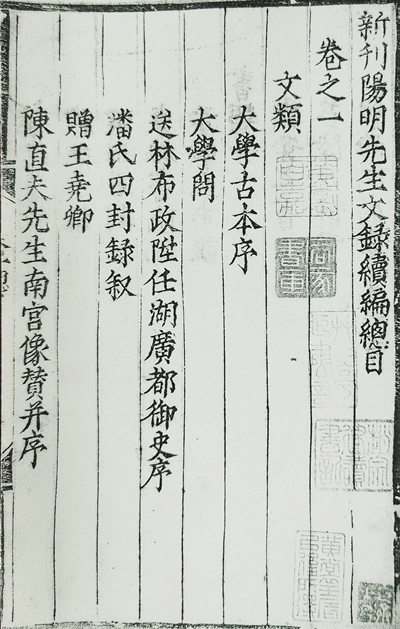 新刊陽明先生文録續編總目
卷之一
文類
大學古本序
大學問
送林布政陞任湖廣都御史序
潘氏四封録叙
贈王堯卿
陳直夫先生南宫像賛并序